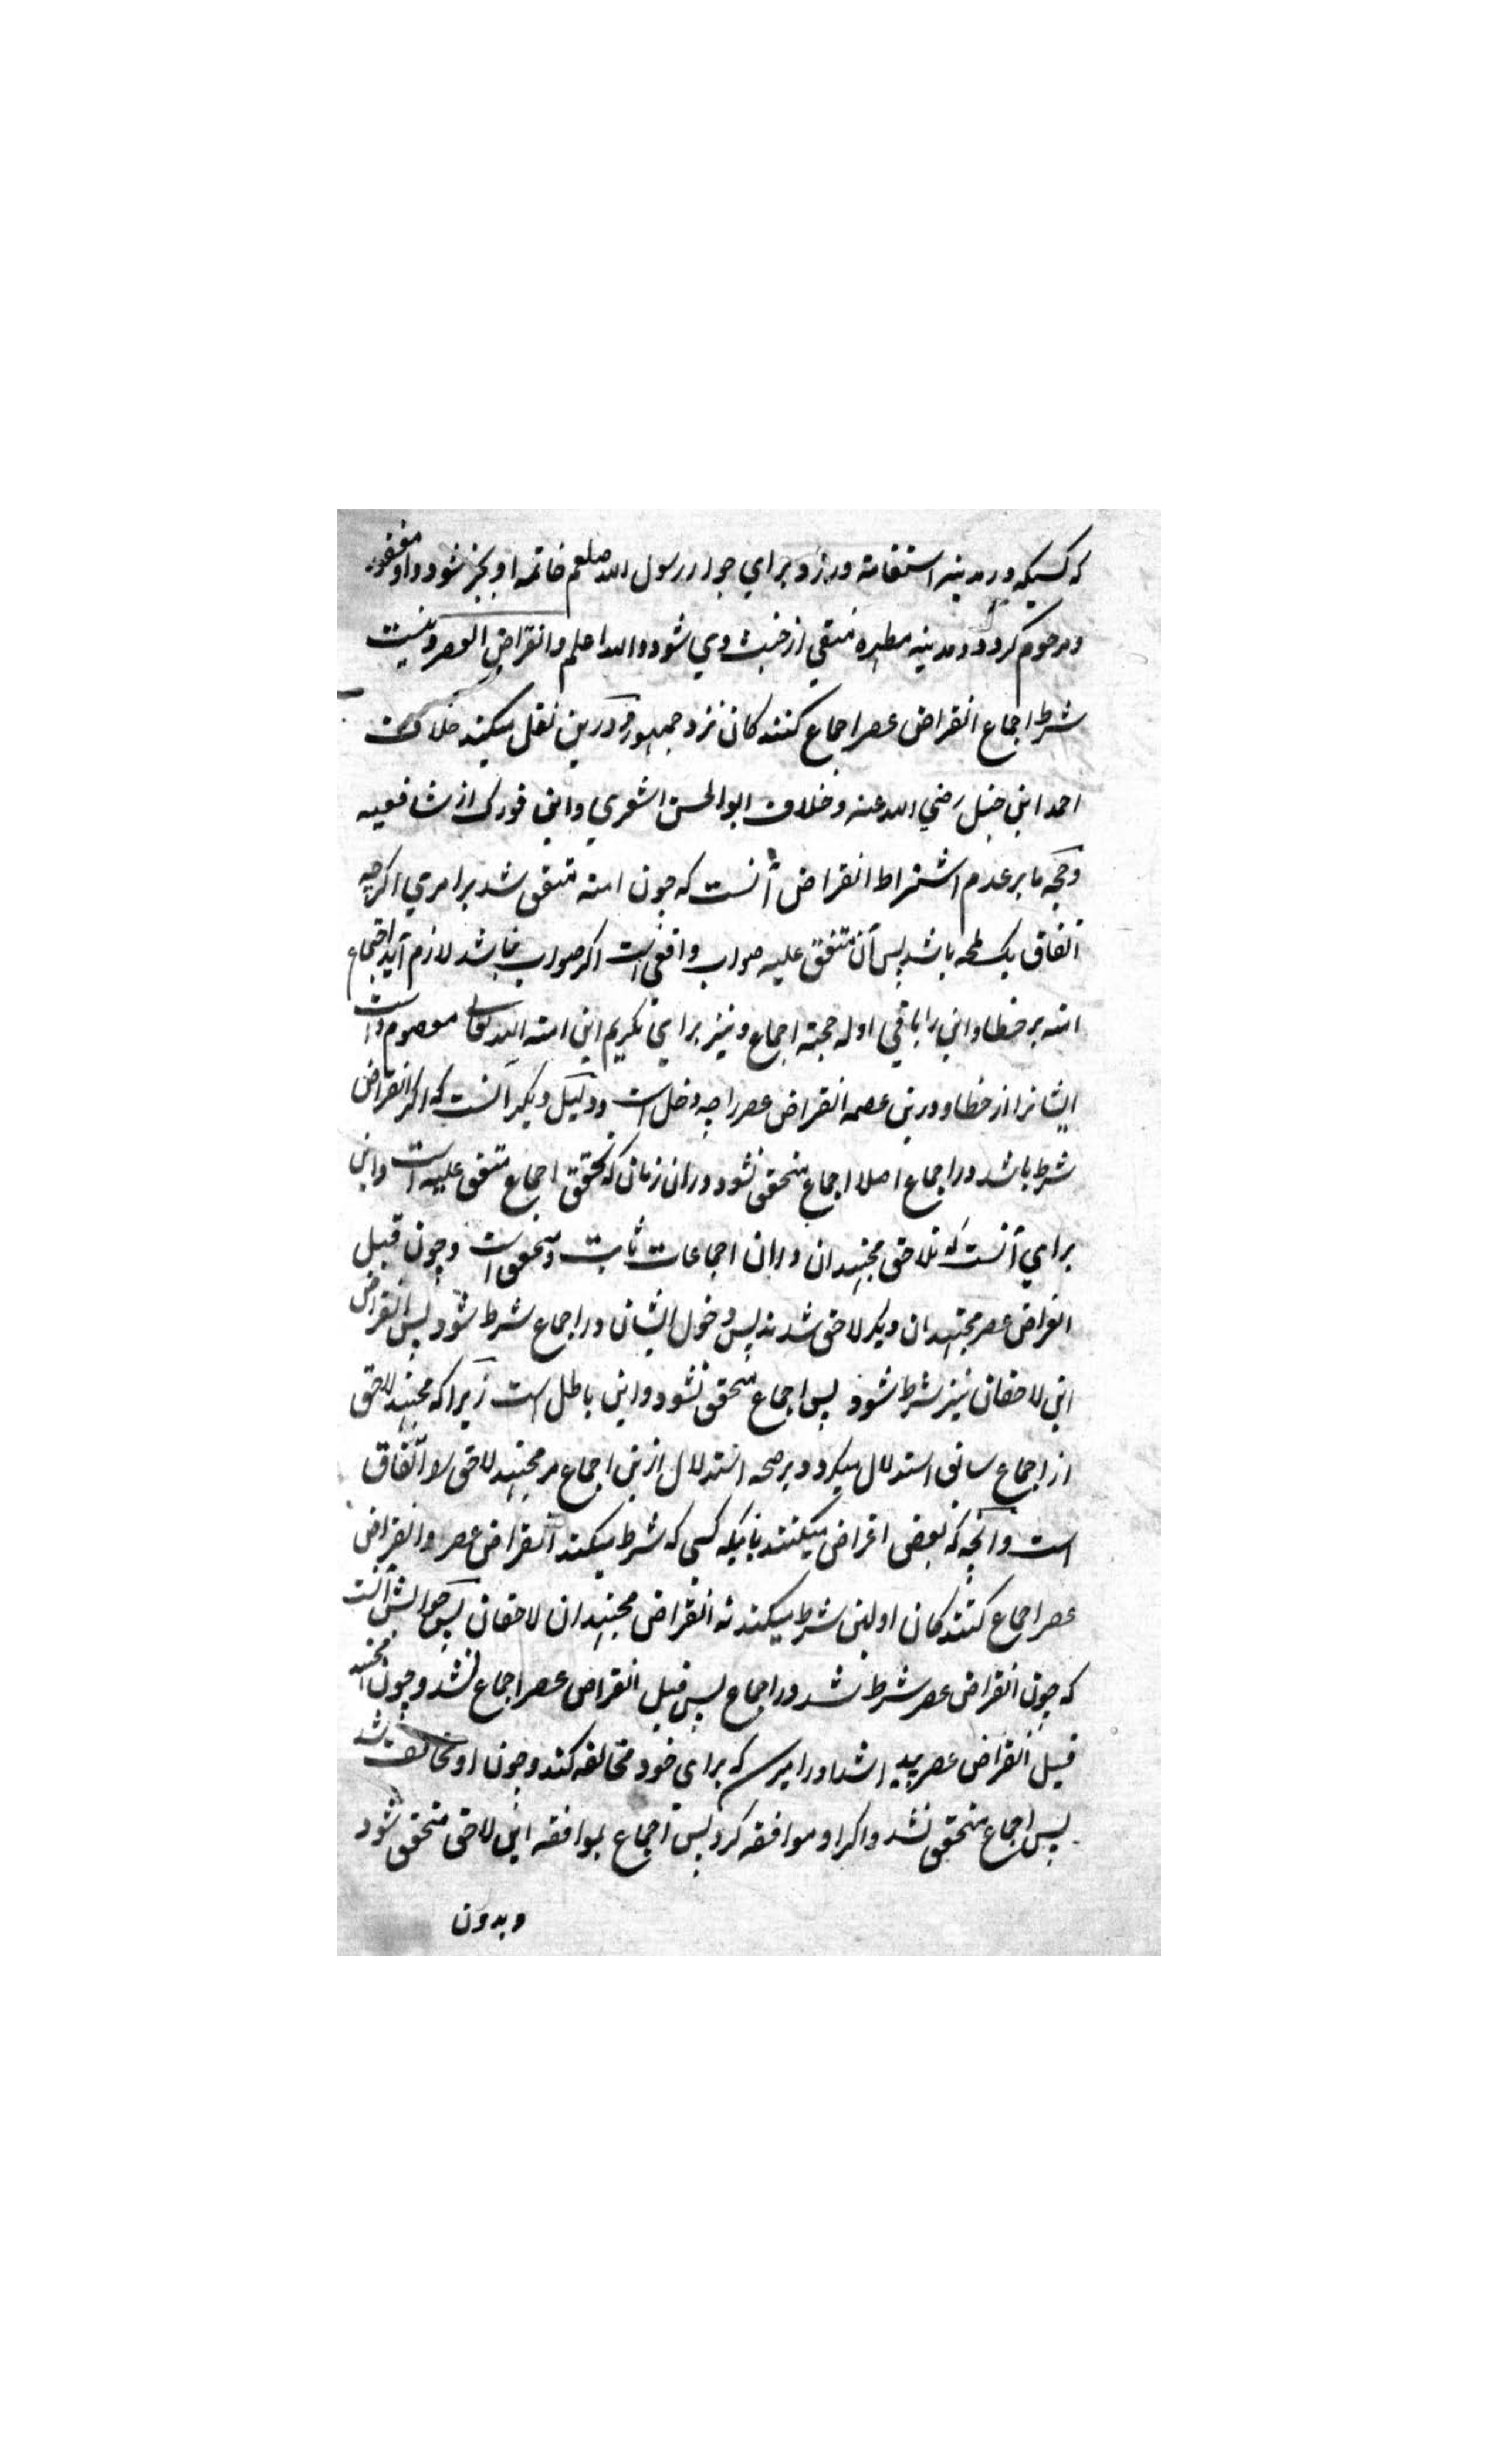 که کسیکه در مدینه استقامته ورزد برای جوار رسول الله صلعم خاتمه او بخیر شود و او مغفور
و مرحوم گردد و مدینه مطهره منقی از خبث وی شود والله اعلم وانقراض العصر و نیست
شرط اجماع انقراض عصر اجماع کنندکان نزد جمهور و درین نقل میکنند خلافت
احمد ابن حنبل رضی الله عنه و خلاف ابوالحسن اشعری و ابن فورک از شافعیه
و حجه ما بر عدم اشتراط انقراض آنست که چون امته متفق شد بر امری اکرچه
اتفاق یک لمحه باشد پس آن متفق علیه صواب واقعی است اکر صواب نباشد لازم آید اجتماع
امته بر خطا و این را باقی ادله حجته اجماع و نیز برای تکریم این امته الله تعالی معصوم داشت
ایشانرا از خطا و درین عصمه انقراض عصر را چه دخل است و دلیل دیکر آنست که اکر انقراض
شرط باشد در اجماع اصلا اجماع متحقق نشود در ان زمان که تحقق اجماع متفق علیه است و این
برای آنست که تلاحق مجتهدان در ان اجماعات ثابت و متحقق است و چون قبل
انقراض عصر مجتهدان دیکر لاحق شدند پس دخول ایشان در اجماع شرط شود پس انقراض
این لاحقان نیز شرط شود پس اجماع متحقق نشود و این باطل است زیرا که مجتهد لاحق
از اجماع سابق استدلال میکرد و بر صحه استدلال ازین اجماع مر مجتهد لاحق را اتفاق
است و آنچه که بعضی اعتراض میکنند باینکه کسی که شرط میکند انقراض عصر و انقراض
عصر اجماع کنندکان اولین شرط میکند نه انقراض مجتهدان لاحقان پس جوابش آنست
که چون انقراض عصر شرط شد در اجماع پس قبل انقراض عصر اجماع نشد و چون مجتهد
قبل انقراض عصر پیدا شد او را میرسد که برای خود مخالفه کند و چون او مخالف شد
پس اجماع متحقق نشد و اکر او موافقه کرد پس اجماع بموافقه این لاحق متحقق شود
و بدون